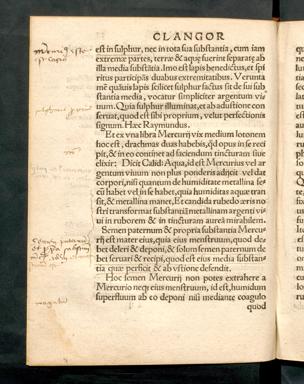 CLANGOR
est in sulphur, nec in tota sua substantia, cum iam
extremæ partes, terræ & aquæ fuerint separatæ ab
illa media substātia. Imo est lapis benedictus, et spi
ritus participās duabus extremitatibus. Verunta
mē qualis lapis scilicet sulphur factus sit de sui sub
stantia media, vocatur simpliciter argentum vi
uum. Quia sulphur illuminat, et ab adustione con
seruat, quod est sibi proprium, velut perfectionis
signum. Hæc Raymundus.
Et ex vna libra Mercurij vix medium lotonem
hoc est, drachmas duas habebis, qd opus in se reci
pit, & in eo continet ad faciendum tincturam siue
elixir: Dicit Calid: Aqua, id est Mercurius vel ar
gentum viuum non plus ponderis adijcit vel dat
corpori, nisi quantum de humiditate metallina se
cū habet vel in se habet, quia humiditas aquæ tran
sit, & metallina manet, Et candida rubedo æris no
stri transformat substantiā metallinam argenti vi
ui in ruborem & in tincturam auream mirabilem.
Semen paternum & propria substantia Mercu
rij est mater eius, quia eius menstruum, quod de
bet deleri & deponi, & solum semen paternum de
bet seruari & recipi, quod est eius media substan-
tia quæ perficit & ab vstione defendit.
Hoc semen Mercurij non potes extrahere a
Mercurio neq; eius menstruum, id est, humidum
superfluum ab eo deponi nisi mediante coagulo
quod